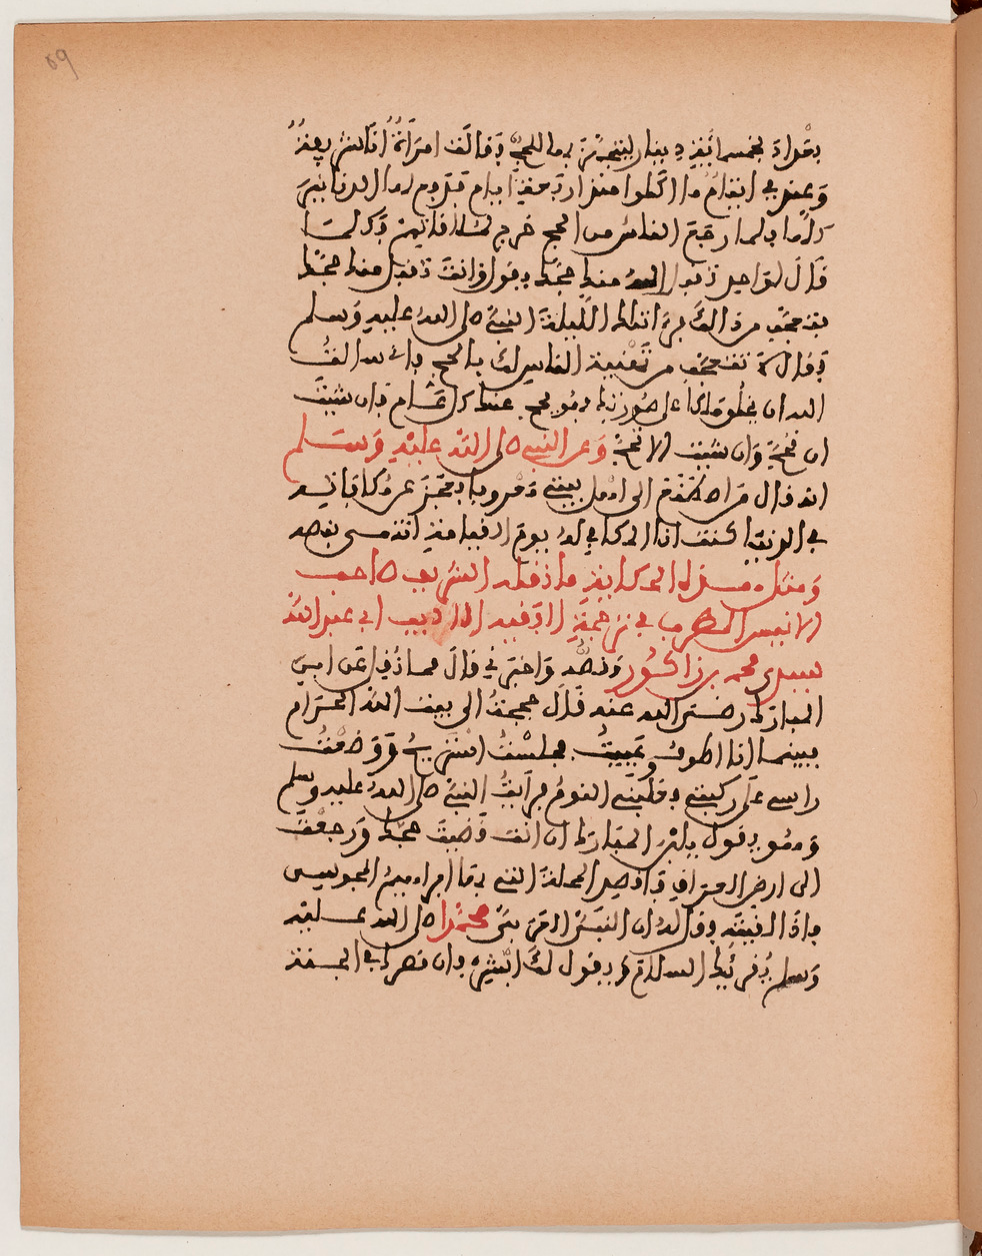 59
بغداد بخمسمائة دينار ليتجهز بها للحج وقالت امرأة أنا شريفة
وعندي ايتام ما اكلوا منذ اربعة ايام فدفع لها الدنانير
فلما رجع الناس من الحج خرج
قال لواحد تقبل الله منك حجك يقول وانت تقبل منك حجك
فتعجب من ذالك فرأى تلك الليلة النبي صلى الله عليه وسلم
وقال لا تتعجب من تهنية الناس لك بالحج فاني سالت
الله ان يخلق ملكا على صورتك يحج عنك كل عام فان شيت
ان تحج وان شيت لا تحج وعن النبي صلى الله عليه وسلم
انه قال من اصطنع الى اهل بيتي معروفا فعجز عن مكافاته
في الدنيا كنت انا المكافي له يوم القيامة انتهى بنصه
ومثل هذه الحكاية ما نقله الشريف صاحب
الانيس المطرب في ترجمة الفقيه الاديب ابي عبد الله
سيدي محمد بن زاكور ونصه واخبرني قال مما نقل عن ابن
المبارك رضي الله عنه قال حججت الى بيت الله الحرام
فبينما انا اطوف وعييت فجلست استريح ووضعت
راسي على ركبتي فغلبني النوم فرايت النبي صلى الله عليه وسلم
وهو يقول يابن المبارك ان انت قضيت حجك ورجعت
الى ارض العراق فاقصد المحلة التي بها ابراهيم المجوسي
فاذا لقيته وقل له ان النبي العربي محمدا صلى الله عليه
وسلم يقريك السلام ويقول لك ابشر فان قصرك في الجنة